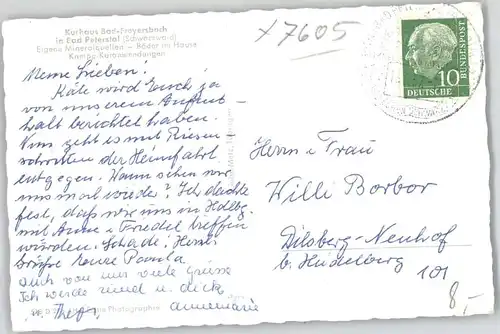 Kurhaus Bad-Freyersbach
in Bad Peterstal (Schwarzwald)
Eigene Mineralquellen – Bäder im Hause
Kneipp-Kuranwendungen
Meine Lieben!
Käte wird Euch ja
von unserem Aufent-
halt berichtet haben.
Nun geht es mit Riesen-
schritten der Heimfahrt
entgegen. Wann sehen wir
uns mal wieder? Ich dachte
fest, daß wir uns in Hdlbg.
mit Anne u. Friedel treffen
würden. Schade! Herzl.
Grüße Eure Paula
Auch von mir viele Grüsse
Ich werde rund u. dick
Annemarie
Photographie
x 7605
10
DEUTSCHE
BUNDESPOST
Herrn u. Frau
Willi Barbor
Dilsberg-Neuhof
b. Heidelberg
101
8,-